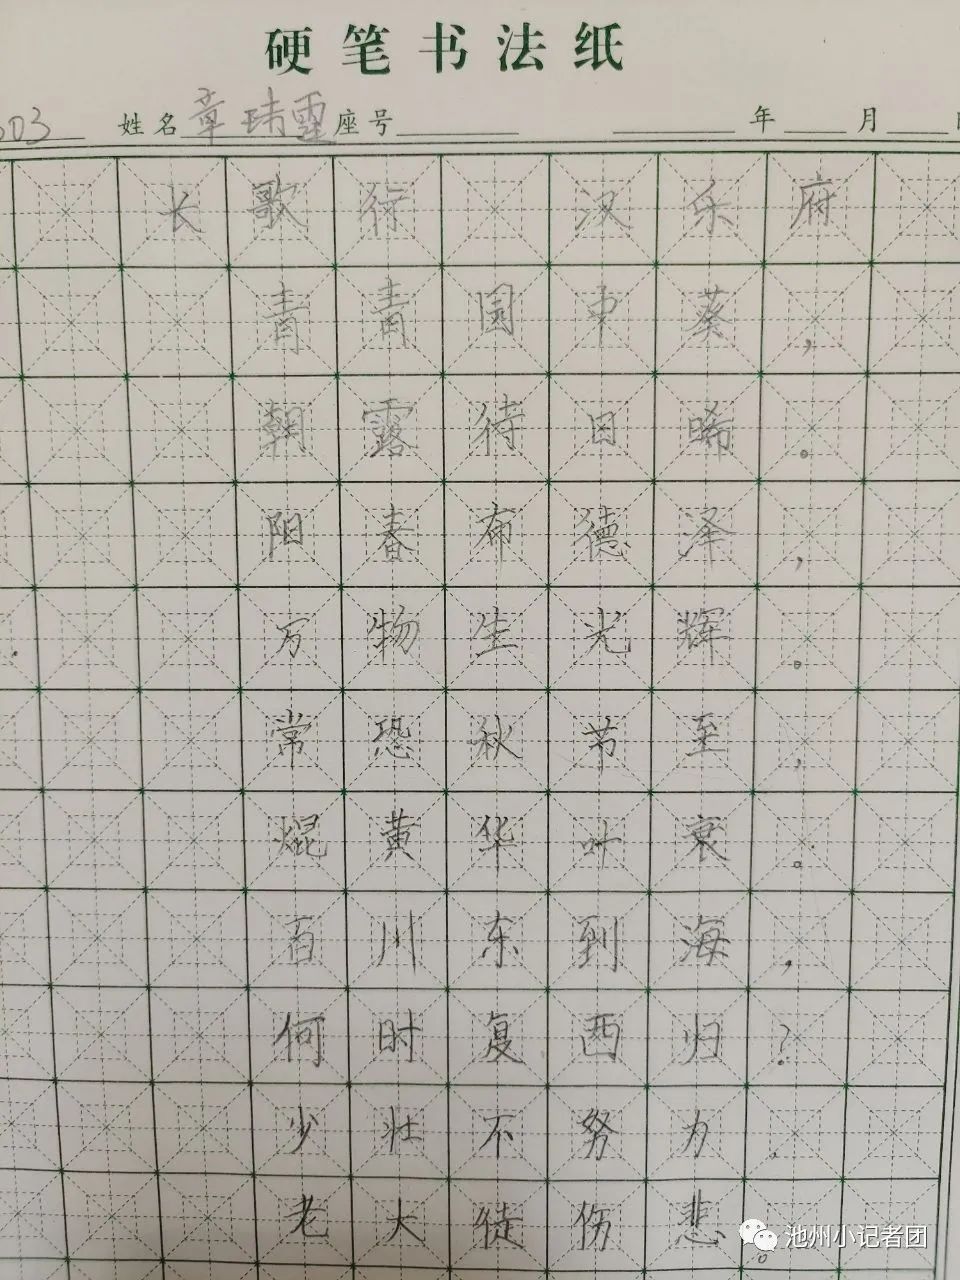 硬笔书法纸
003 姓名 章玮霆 座号 年 月
长歌行 汉乐府
青青园中葵，
朝露待日晞。
阳春布德泽，
万物生光辉。
常恐秋节至，
焜黄华叶衰。
百川东到海，
何时复西归？
少壮不努力，
老大徒伤悲。
池州小记者团